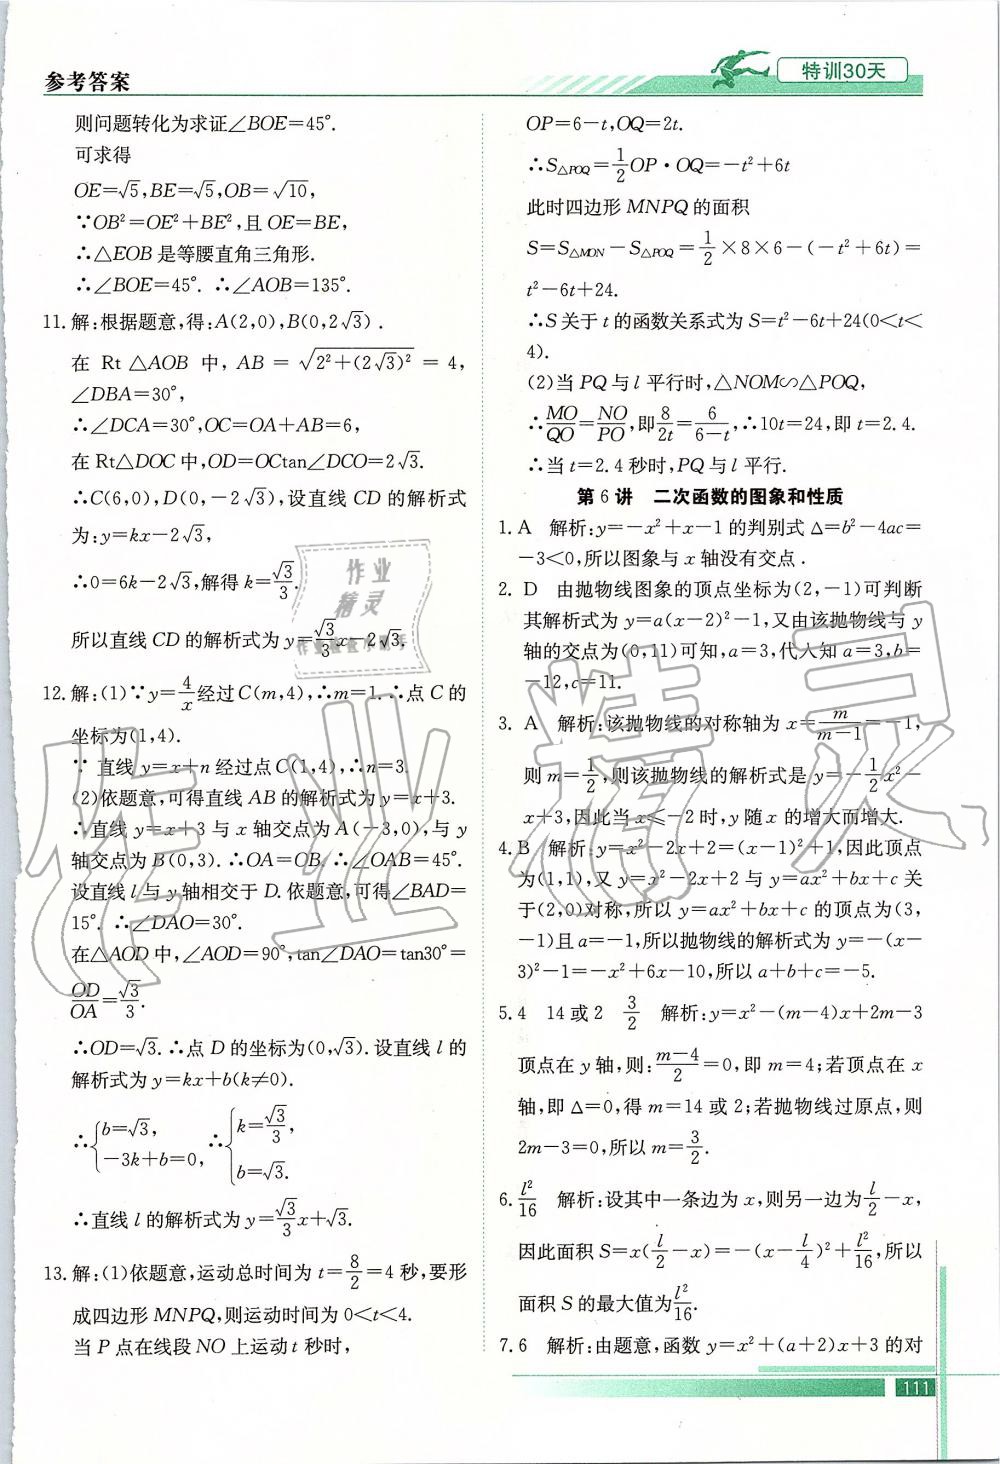 参考答案
特训30天
则问题转化为求证∠BOE=45°.
可求得
OE=√5,BE=√5,OB=√10,
∵OB²=OE²+BE²,且 OE=BE,
∴△EOB 是等腰直角三角形.
∴∠BOE=45°. ∴∠AOB=135°.
11.解:根据题意,得:A(2,0),B(0,2√3).
在 Rt △AOB 中, AB = √(2²+(2√3)²) = 4,
∠DBA=30°,
∴∠DCA=30°,OC=OA+AB=6,
在 Rt△DOC 中,OD=OCtan∠DCO=2√3.
∴C(6,0),D(0,-2√3),设直线 CD 的解析式
为:y=kx-2√3,
∴0=6k-2√3,解得 k=√3/3.
所以直线 CD 的解析式为 y=√3/3x-2√3.
12.解:(1)∵y=4/x经过 C(m,4),∴m=1. ∴点 C 的
坐标为(1,4).
∵ 直线 y=x+n 经过点 C(1,4),∴n=3.
(2)依题意,可得直线 AB 的解析式为 y=x+3.
∴直线 y=x+3 与 x 轴交点为 A(-3,0),与 y
轴交点为 B(0,3). ∴OA=OB. ∴∠OAB=45°.
设直线 l 与 y 轴相交于 D. 依题意,可得∠BAD=
15°. ∴∠DAO=30°.
在△AOD 中,∠AOD=90°,tan∠DAO=tan30°=
OD/OA=√3/3.
∴OD=√3. ∴点 D 的坐标为(0,√3). 设直线 l 的
解析式为 y=kx+b(k≠0).
∴{b=√3, -3k+b=0, ∴{k=√3/3, b=√3.
∴直线 l 的解析式为 y=√3/3x+√3.
13.解:(1)依题意,运动总时间为 t=8/2=4 秒,要形
成四边形 MNPQ,则运动时间为 0<t<4.
当 P 点在线段 NO 上运动 t 秒时,
OP=6-t,OQ=2t.
∴S△POQ=1/2OP·OQ=-t²+6t
此时四边形 MNPQ 的面积
S=S△MON-S△POQ=1/2×8×6-(-t²+6t)=
t²-6t+24.
∴S 关于 t 的函数关系式为 S=t²-6t+24(0<t<
4).
(2)当 PQ 与 l 平行时,△NOM∽△POQ,
∴MO/QO=NO/PO,即8/2t=6/6-t,∴10t=24,即 t=2.4.
∴当 t=2.4 秒时,PQ 与 l 平行.
第 6 讲 二次函数的图象和性质
1. A 解析:y=-x²+x-1 的判别式 Δ=b²-4ac=
-3<0,所以图象与 x 轴没有交点.
2. D 由抛物线图象的顶点坐标为(2,-1)可判断
其解析式为 y=a(x-2)²-1,又由该抛物线与 y
轴的交点为(0,11)可知,a=3,代入知 a=3,b=
-12,c=11.
3. A 解析:该抛物线的对称轴为 x=m/m-1=-1,
则 m=1/2,则该抛物线的解析式是 y=-1/2x²-
x+3,因此当 x≤-2 时,y 随 x 的增大而增大.
4.B 解析:y=x²-2x+2=(x-1)²+1,因此顶点
为(1,1),又 y=x²-2x+2 与 y=ax²+bx+c 关
于(2,0)对称,所以 y=ax²+bx+c 的顶点为(3,
-1)且 a=-1,所以抛物线的解析式为 y=-(x-
3)²-1=-x²+6x-10,所以 a+b+c=-5.
5.4 14 或 2 3/2 解析:y=x²-(m-4)x+2m-3
顶点在 y 轴,则:m-4/2=0,即 m=4;若顶点在 x
轴,即 Δ=0,得 m=14 或 2;若抛物线过原点,则
2m-3=0,所以 m=3/2.
6.l²/16 解析:设其中一条边为 x,则另一边为l/2-x,
因此面积 S=x(l/2-x)=-(x-l/4)²+l²/16,所以
面积 S 的最大值为l²/16.
7.6 解析:由题意,函数 y=x²+(a+2)x+3 的对
111
作业精灵
作业
精灵